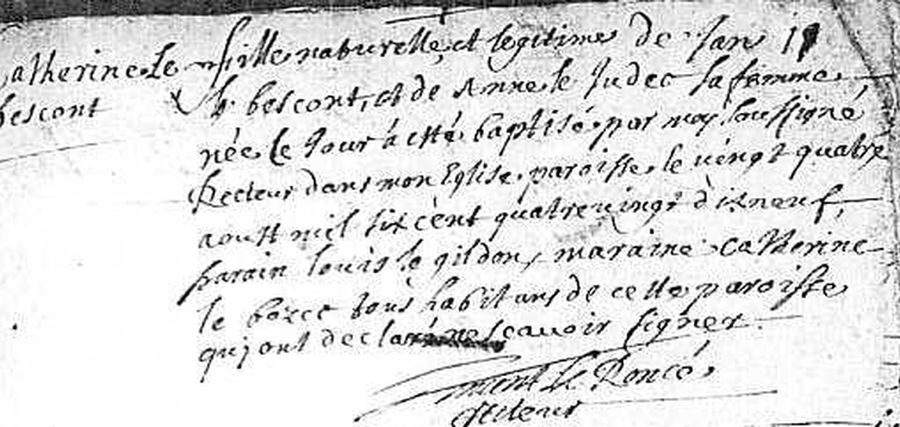 Catherine Le fille naturelle et legitime de Jan
bescont bescont, et de Anne le Judec sa femme
née ce jour à esté baptisé par moy soussigné
Recteur dans mon Eglise paroisse le vingt quatre
aoust mil six cent quatre vingt dixneuf,
parain louis le gildon, maraine Catherine
le bozec tous habitans de cette paroisse
qui ont declaré ne scavoir signer.
le Poncé